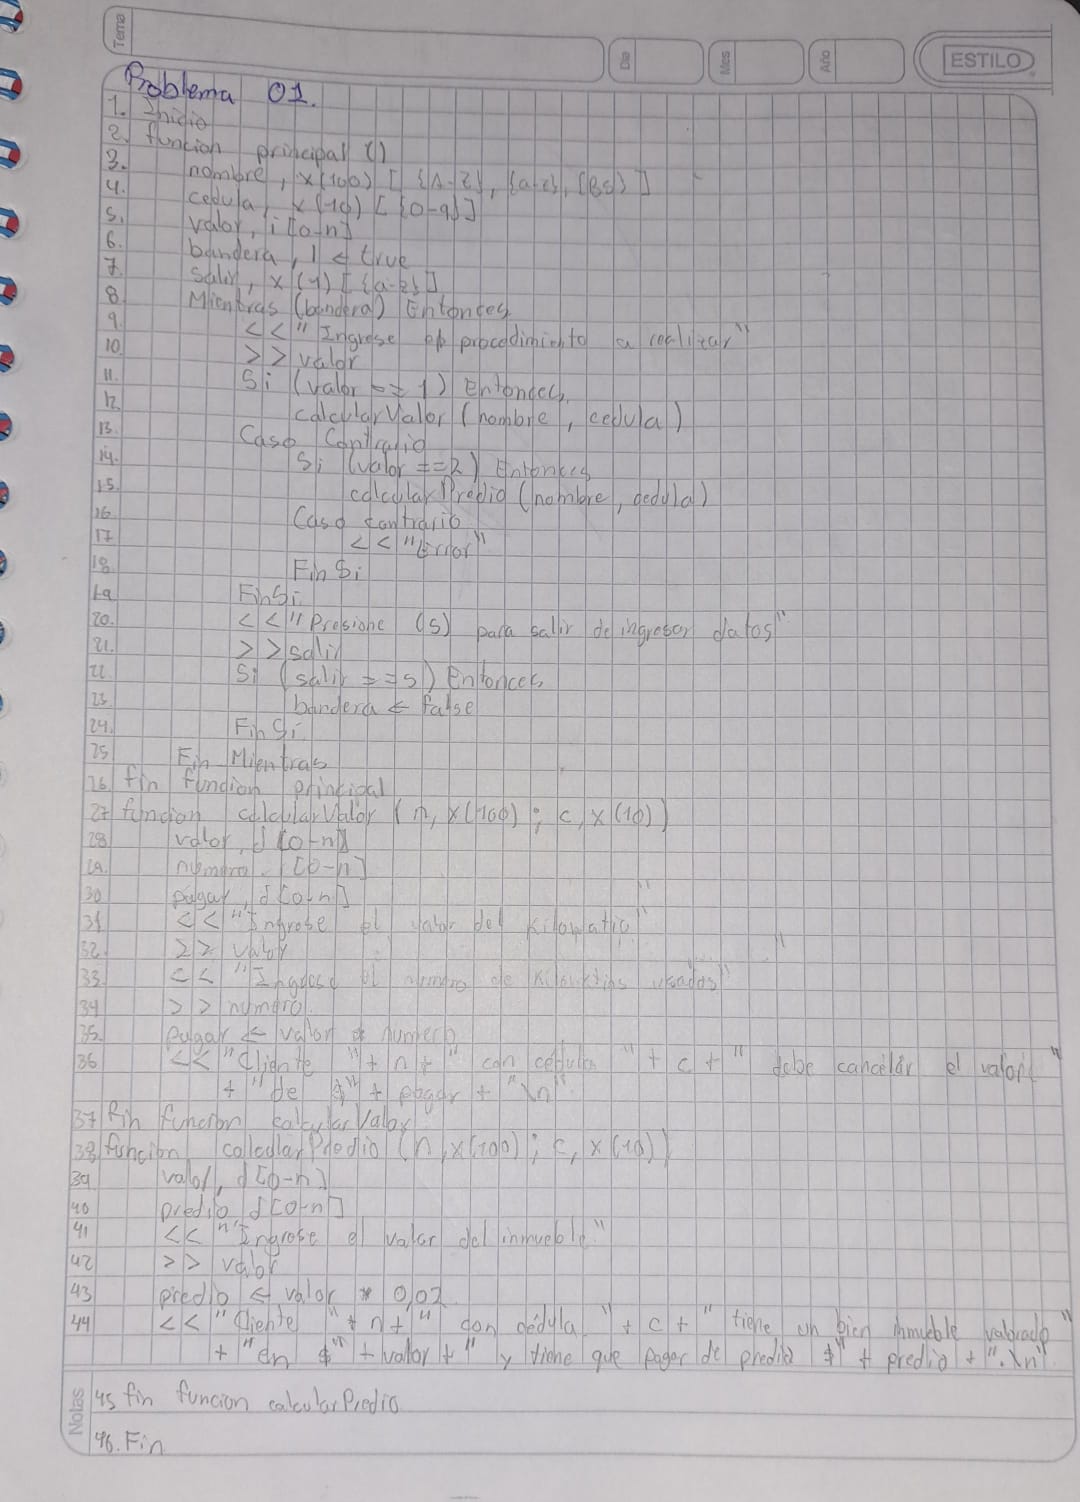 Tema
Dia
Mes
Año
ESTILO
Problema 01.
1. Inicio
2. funcion principal ()
3. nombre, x(100) [ {A-Z}, {a-z}, {Bs} ]
4. cedula, x(10) [ {0-9} ]
5. valor, i [0-n]
6. bandera, l ← true
7. salir, x (1) [ {a-z} ]
8. Mientras (bandera) Entonces
9. << "Ingrese el procedimiento a realizar"
10. >> valor
11. Si (valor == 1) Entonces,
12. calcularValor (nombre, cedula)
13. Caso Contrario
14. Si (valor == 2) Entonces
15. calcularPredio (nombre, cedula)
16. Caso contrario
17 << "Error"
18. Fin Si
19 FinSi
20. << "Presione (s) para salir de ingresar datos"
21. >> salir
22 Si (salir == s) Entonces
23 bandera ← false
24. Fin Si
25 Fin Mientras
26. fin funcion principal
27 funcion calcularValor (n, x(100) ; c, x(10))
28 valor, d [0-n]
29. numero [0-n]
30 pagar, d [0-n]
31 << "Ingrese el valor del kilowatio"
32. >> valor
33. << "Ingrese el numero de kilowatios usados"
34 >> numero
35. pagar ← valor * numero
36 << "Cliente "+ n + " con cedula " + c + " debe cancelar el valor "
+ "de $" + pagar + "\n"
37 Fin funcion calcularValor
38 funcion calcularPredio (n, x(100) ; c, x(10))
39 valor, d [0-n]
40 predio, d [0-n]
41 << "Ingrese el valor del inmueble"
42 >> valor
43 predio ← valor * 0,02
44 << "Cliente "+ n + " con cédula " + c + " tiene un bien inmueble valorado "
+ "en $" + valor + " y tiene que pagar de predio $" + predio + ".\n"
Notas
45 fin funcion calcularPredio
46. Fin